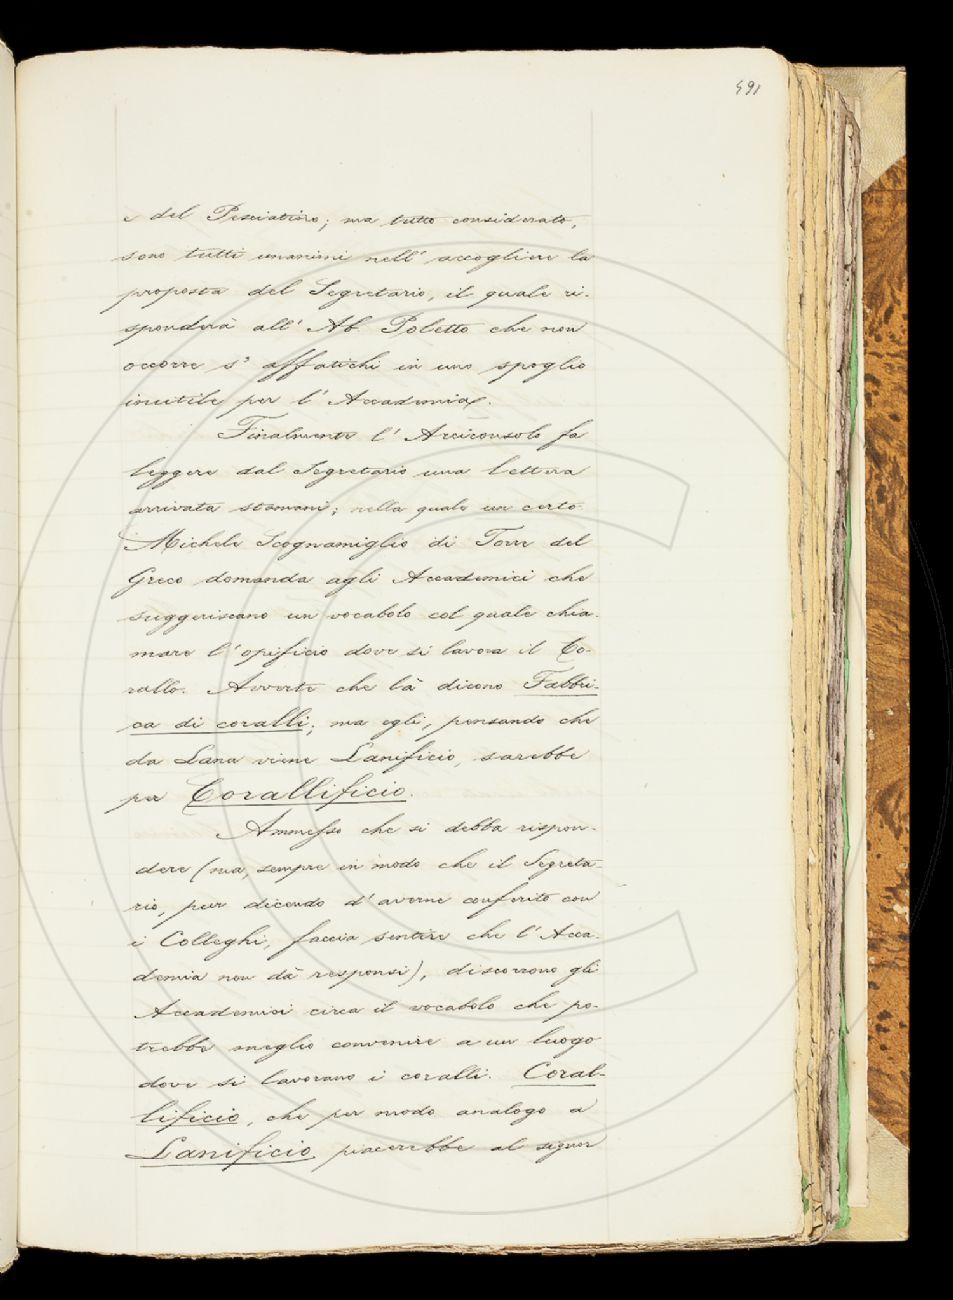 491
e del Pesciatino; ma tutto considerato,
sono tutti unanimi nell' accogliere la
proposta del Segretario, il quale ri-
sponderà all' Ab Poletto che non
occorre s' affatichi in uno spoglio
inutile per l' Accademia.
Finalmente l' Arciconsolo fa
leggere dal Segretario una lettera
arrivata stamani; nella quale un certo
Michele Scognamiglio di Torre del
Greco domanda agli Accademici che
suggeriscano un vocabolo col quale chia-
mare l' opificio dove si lavora il Co-
rallo. Avverte che là dicono Fabbri-
ca di coralli; ma egli, pensando che
da Lana viene Lanificio, sarebbe
per Corallificio.
Ammesso che si debba rispon-
dere (ma, sempre in modo che il Segreta-
rio, pur dicendo d' averne conferito con
i Colleghi, faccia sentire che l' Acca-
demia non dà responsi), discorrono gli
Accademici circa il vocabolo che po-
trebbe meglio convenire a un luogo
dove si lavorano i coralli. Coral-
lificio, che per modo analogo a
Lanificio piacerebbe al signor